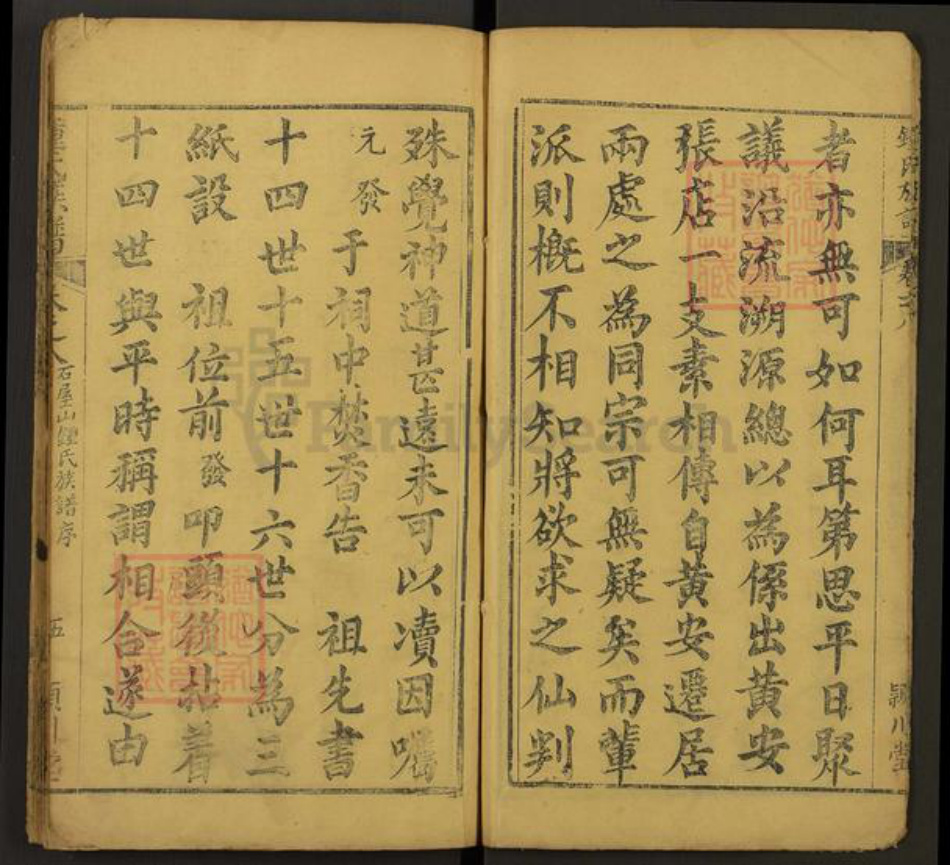 鍾氏族譜 卷之八
潁川堂
者亦無可如何耳第思平日聚
議沿流溯源總以為係出黃安
張店一支素相傳自黃安遷居
兩處之為同宗可無疑矣而輩
派則概不相知將欲求之仙判
殊覺神道甚遠未可以凟因囑
元發于祠中焚香告 祖先書
十四世十五世十六世分為三
紙設 祖位前發叩頭後拈着
十四世與平時稱謂相合遂由
石屋山鍾氏族譜序
五
FamilySearch